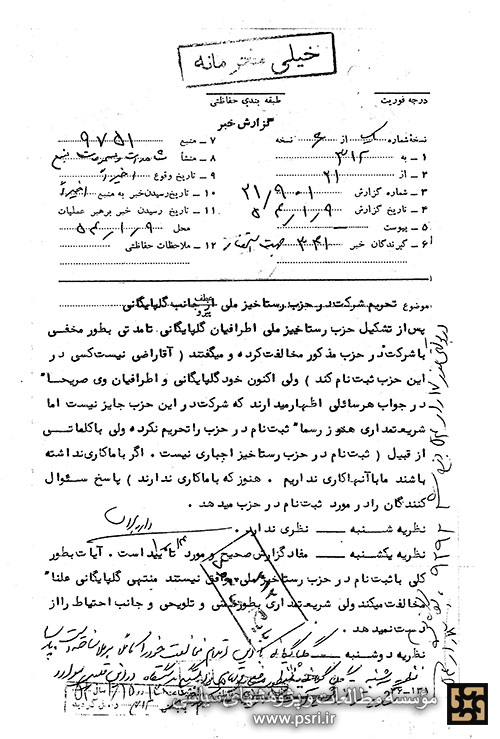 خیلی محرمانه
درجه فوریت
طبقه بندی حفاظتی
گزارش خبر
نسخه شماره یک از ۶ نسخه
۱ ـ به ۳۱۲
۲ ـ از ۲۱
۳ ـ شماره گزارش ۲۱/۹۰۱
۴ ـ تاریخ گزارش ۵۴/۱/۹
۵ ـ پیوست
۶ ـ گیرندگان خبر ۳۴۱ جهت استحضار
۷ ـ منبع ۹۷۵۱
۸ ـ منشأ مشاهدات و مسموعات منبع
۹ ـ تاریخ وقوع اخیراً
۱۰ ـ تاریخ رسیدن خبر به منبع اخیراً
۱۱ ـ تاریخ رسیدن خبر برهبر عملیات
محل ۵۴/۱/۹
۱۲ ـ ملاحظات حفاظتی
موضوع تحریم شرکت در حزب رستاخیز ملی از جانب گلپایگانی
پس از تشکیل حزب رستاخیز ملی اطرافیان گلپایگانی تا مدتی بطور مخفی
با شرکت در حزب مذکور مخالفت کرده و میگفتند ( آقا راضی نیست کسی در
این حزب ثبت نام کند ) ولی اکنون خود گلپایگانی و اطرافیان وی صریحا"
در جواب هر سائلی اظهار میدارند که شرکت در این حزب جایز نیست اما
شریعتمداری هنوز رسما" ثبت نام در حزب را تحریم نکرده ولی با کلماتی
از قبیل ( ثبت نام در حزب رستاخیز اجباری نیست . اگر با ما کاری نداشته
باشند ما با آنها کاری نداریم . هنوز که با ما کاری ندارند ) پاسخ سئوال
کنندگان را در مورد ثبت نام در حزب میدهد .
نظریه شنبه ــ نظری ندارد .
نظریه یکشنبه ــ مفاد گزارش صحیح و مورد تأیید است . آیات بطور
کلی با ثبت نام در حزب رستاخیز ملی موافق نیستند منتهی گلپایگانی علنا"
مخالفت میکند ولی شریعتمداری بطور خفی و تلویحی و جانب احتیاط را از
دست نمیدهد .
نظریه دوشنبه ــ گلپایگانی
نظریه سه‌شنبه
موسسه مطالعات و پژوهشهای سیاسی
www.psri.ir